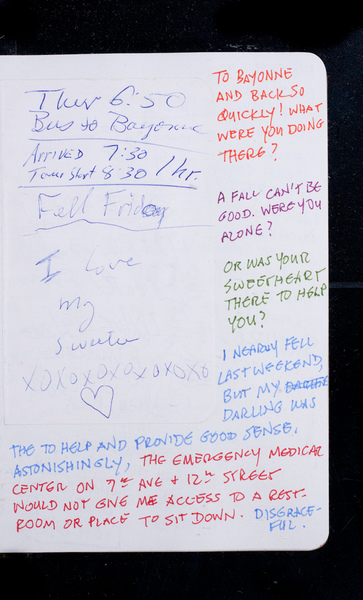 Thur 6:50
Bus to Bayonne
ARRIVED 7:30
Tour start 8:30 / 1 hr.
Fell Friday
I love
my
sweetie
XOXOXOXOXOXOXO
TO BAYONNE
AND BACK SO
QUICKLY! WHAT
WERE YOU DOING
THERE?
A FALL CAN'T BE
GOOD. WERE YOU
ALONE?
OR WAS YOUR
SWEETHEART
THERE TO HELP
YOU?
I NEARLY FELL
LAST WEEKEND,
BUT MY
DARLING WAS
THE TO HELP AND PROVIDE GOOD SENSE.
ASTONISHINGLY, THE EMERGENCY MEDICAL
CENTER ON 7TH AVE + 12TH STREET
WOULD NOT GIVE ME ACCESS TO A REST-
ROOM OR PLACE TO SIT DOWN. DISGRACE-
FUL.